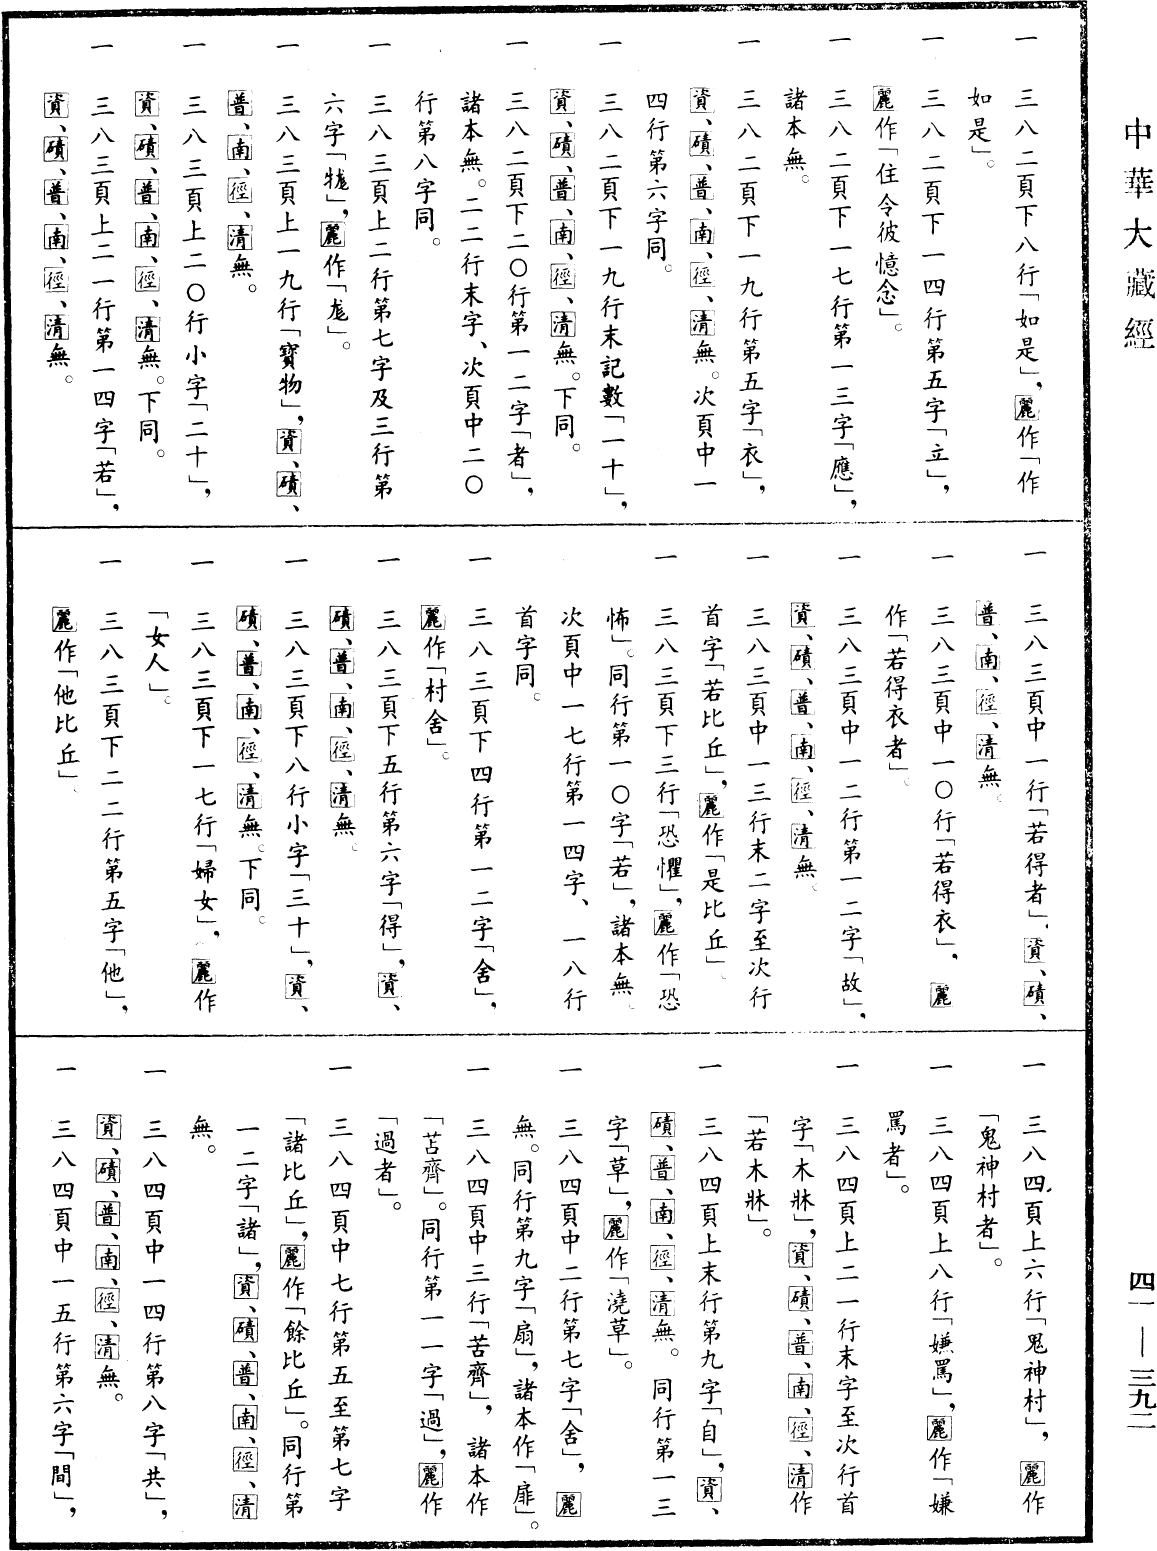 中華大藏經
四一—三九二
一 三八二頁下八行「如是」，麗作「作
如是」。
一 三八二頁下一四行第五字「立」，
麗作「住令彼憶念」。
一 三八二頁下一七行第一三字「應」，
諸本無。
一 三八二頁下一九行第五字「衣」，
資、磧、普、南、徑、清無。次頁中一
四行第六字同。
一 三八二頁下一九行末記數「一十」，
資、磧、普、南、徑、清無。下同。
一 三八二頁下二〇行第一二字「者」，
諸本無。二二行末字、次頁中二〇
行第八字同。
一 三八三頁上二行第七字及三行第
六字「狵」，麗作「尨」。
一 三八三頁上一九行「寶物」，資、磧、
普、南、徑、清無。
一 三八三頁上二〇行小字「二十」，
資、磧、普、南、徑、清無。下同。
一 三八三頁上二一行第一四字「若」，
資、磧、普、南、徑、清無。
一 三八三頁中一行「若得者」，資、磧、
普、南、徑、清無。
一 三八三頁中一〇行「若得衣」，麗
作「若得衣者」。
一 三八三頁中一二行第一二字「故」，
資、磧、普、南、徑、清無。
一 三八三頁中一三行末二字至次行
首字「若比丘」，麗作「是比丘」。
一 三八三頁下三行「恐懼」，麗作「恐
怖」。同行第一〇字「若」，諸本無。
次頁中一七行第一四字、一八行
首字同。
一 三八三頁下四行第一二字「舍」，
麗作「村舍」。
一 三八三頁下五行第六字「得」，資、
磧、普、南、徑、清無。
一 三八三頁下八行小字「三十」，資、
磧、普、南、徑、清無。下同。
一 三八三頁下一七行「婦女」，麗作
「女人」。
一 三八三頁下二二行第五字「他」，
麗作「他比丘」。
一 三八四頁上六行「鬼神村」，麗作
「鬼神村者」。
一 三八四頁上八行「嫌罵」，麗作「嫌
罵者」。
一 三八四頁上二一行末字至次行首
字「木牀」，資、磧、普、南、徑、清作
「若木牀」。
一 三八四頁上末行第九字「自」，資、
磧、普、南、徑、清無。同行第一三
字「草」，麗作「澆草」。
一 三八四頁中二行第七字「舍」，麗
無。同行第九字「扇」，諸本作「扉」。
一 三八四頁中三行「苦齊」，諸本作
「苫齊」。同行第一一字「過」，麗作
「過者」。
一 三八四頁中七行第五至第七字
「諸比丘」，麗作「餘比丘」。同行第
一二字「諸」，資、磧、普、南、徑、清
無。
一 三八四頁中一四行第八字「共」，
資、磧、普、南、徑、清無。
一 三八四頁中一五行第六字「間」，